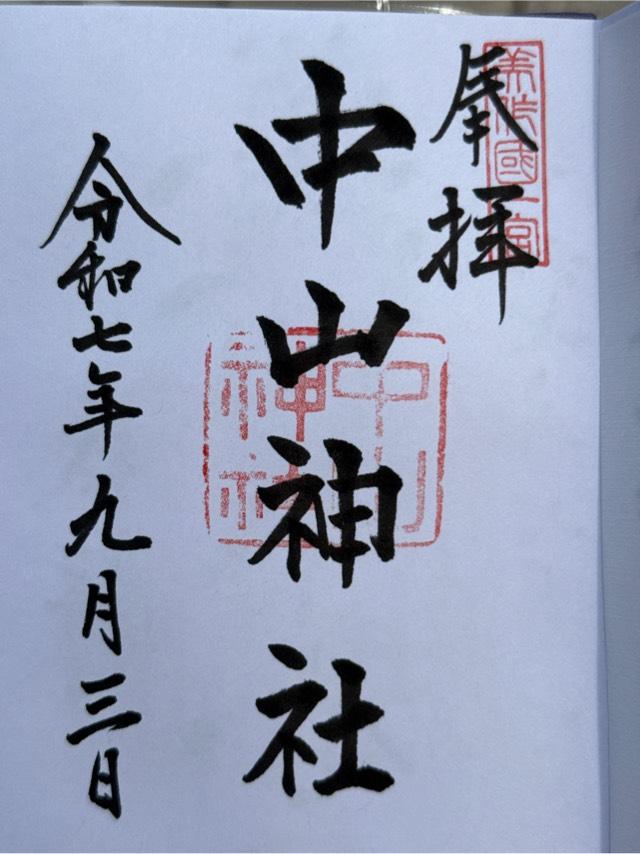 奉拝
美作國一宮
中山神社
中山神社
令和七年九月三日